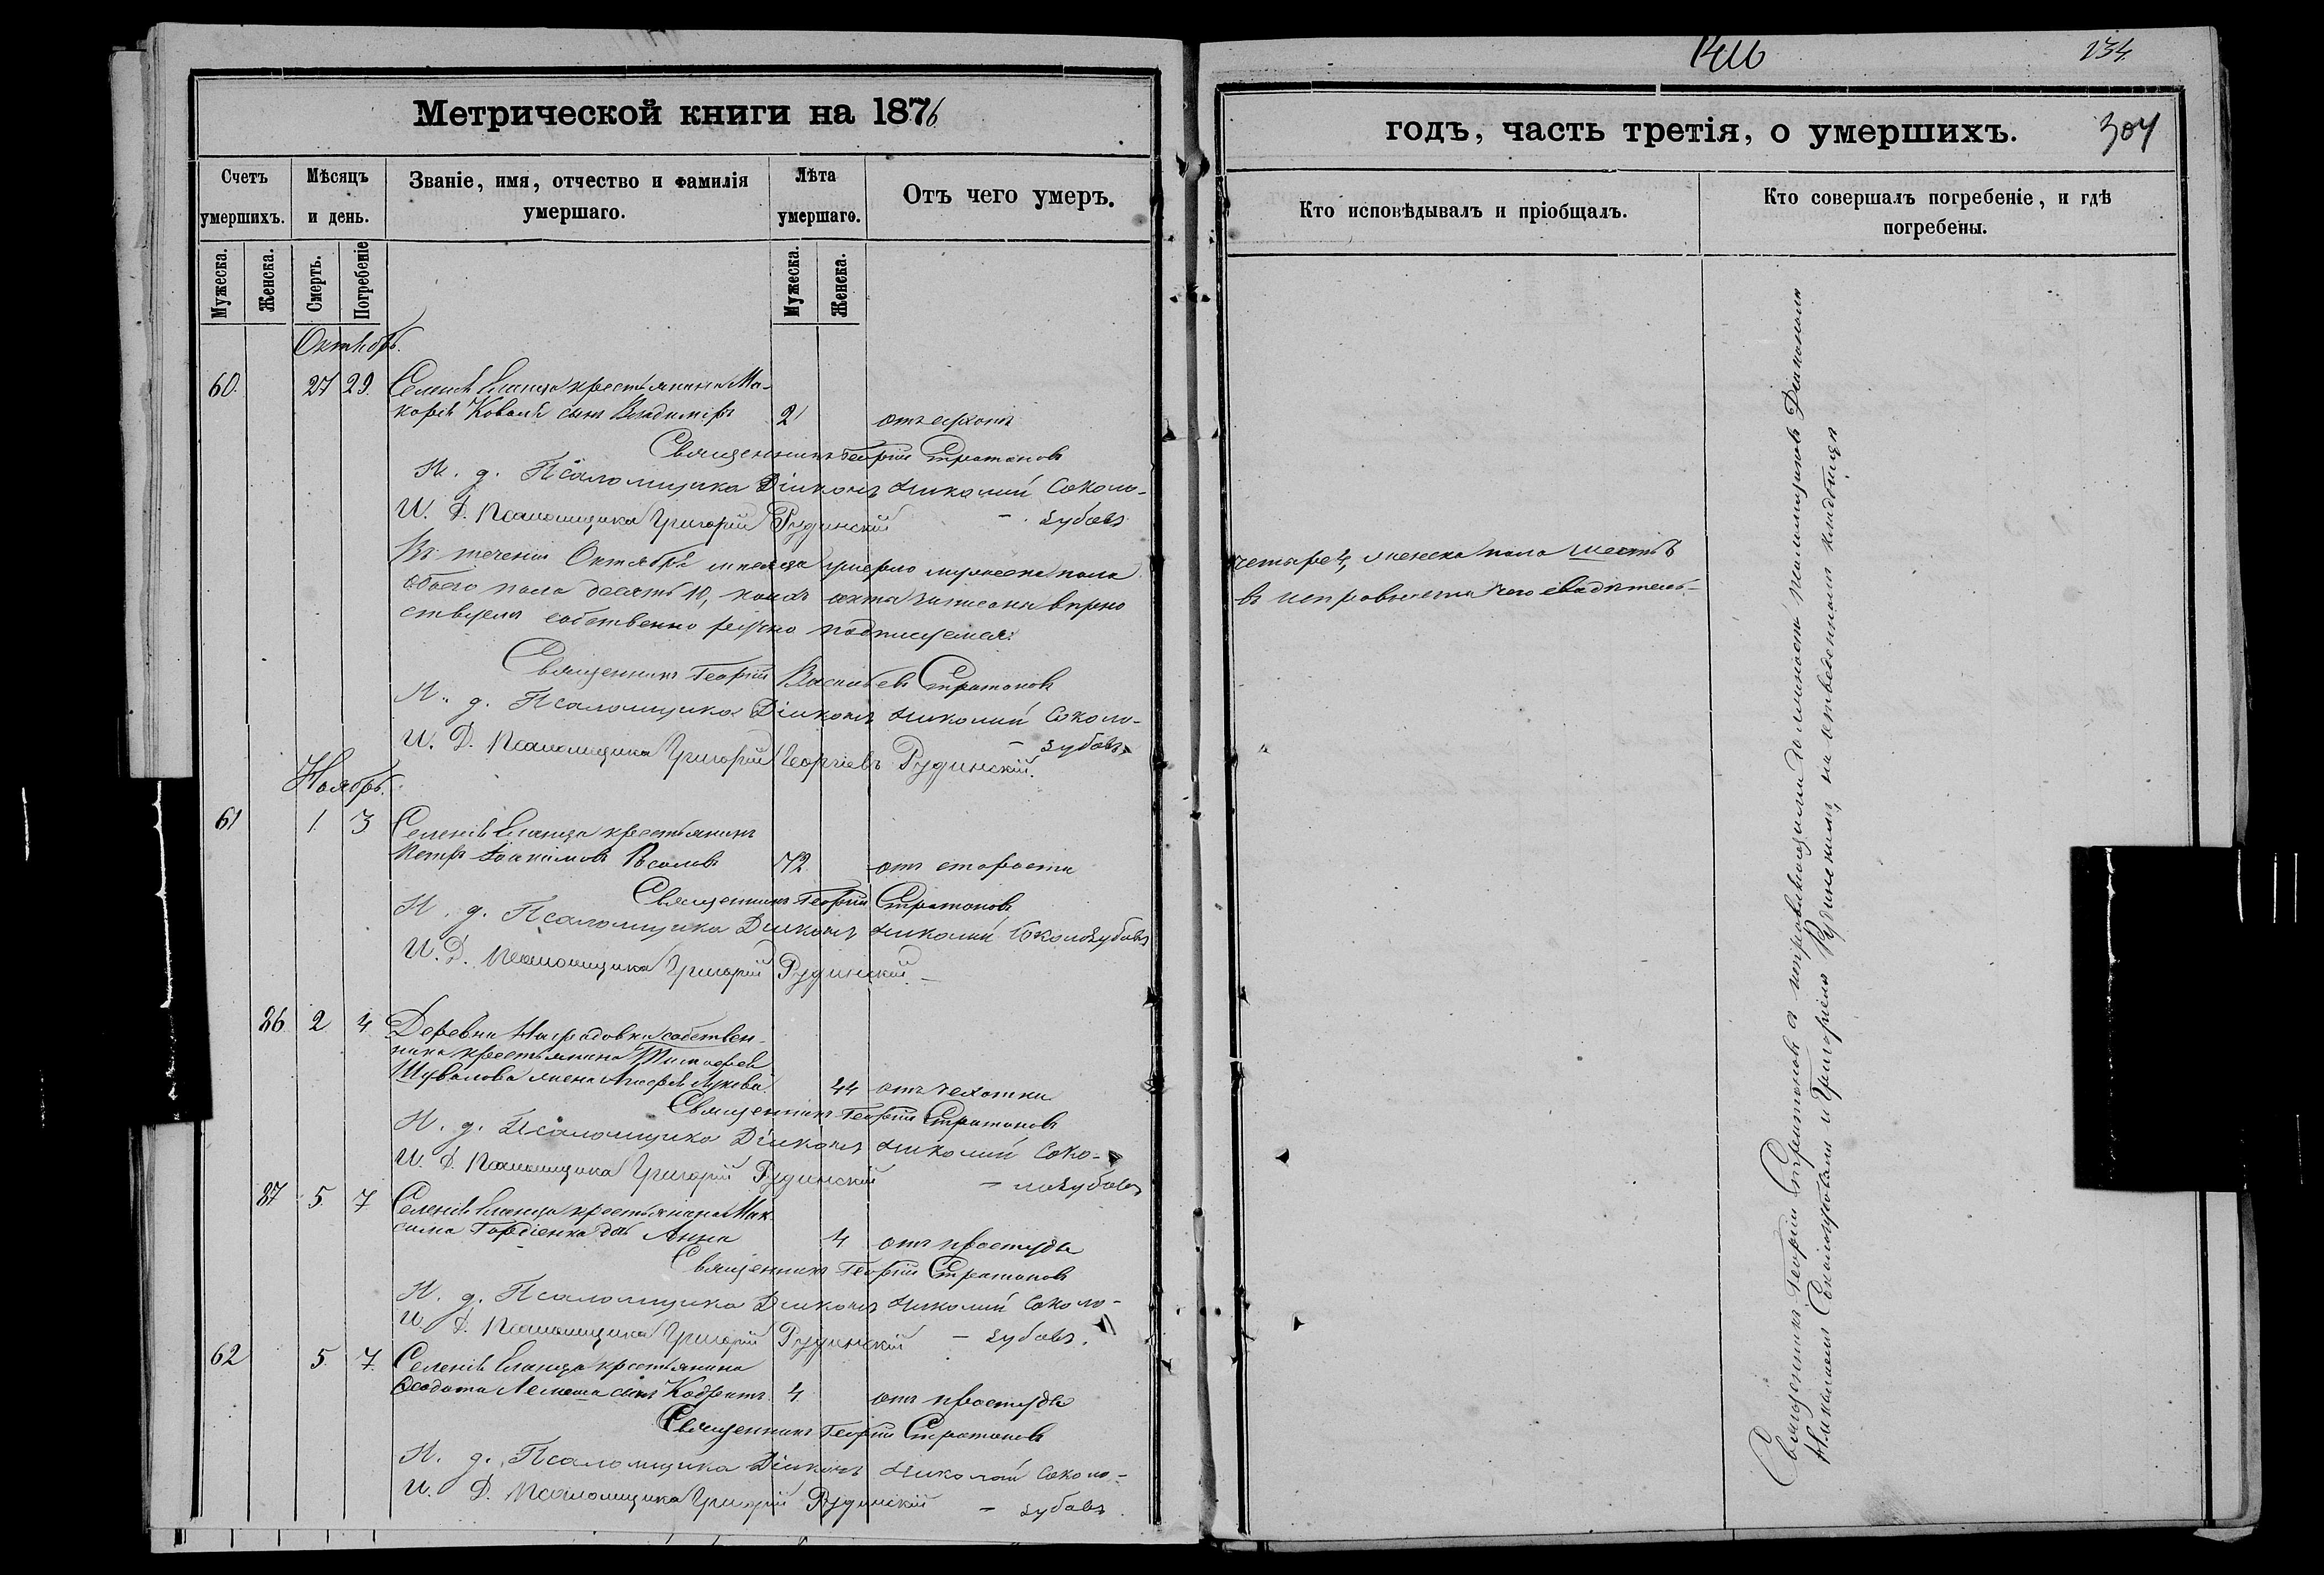 Метрической книги на 1876
Счетъ умершихъ.
Мѣсяцъ и день.
Званіе, имя, отчество и фамилія умершаго.
Лѣта умершаго.
Отъ чего умеръ.
Мужеска.
Женска.
Смерть.
Погребеніе
Мужеска.
Женска.
Октябрь.
60. 27 29. Селенія Еланца крестьянина Ма-
карія Коваля сынъ Владиміръ 2
Священникъ Георгій Стратоновъ
И. д. Псаломщика Діаконъ Николай Соколо-
И. Д. Псаломщика Григорій Рудинскій - зубовъ
Въ теченіи Октября месяца умерло мужеска пола
обоего пола десять 10,
ствуемъ собственно ручно подписуемся:
Священникъ Георгій Васильевъ Стратоновъ
И. д. Псаломщика Діаконъ Николай Соколо-
- зубовъ
И. Д. Псаломщика Григорій Георгіевъ Рудинскій.
Ноябрь.
61 1. 3 Селенія Еланца крестьянинъ
Петръ Іоакимовъ 72 отъ старости
Священникъ Георгій Стратоновъ
И. д. Псаломщика Діаконъ Николай Соколозубовъ
И. Д. Псаломщика Григорій Рудинскій. -
36 2 4 Деревни собствен-
ника крестьянина Тимофея
Шувалова жена 44 отъ чехотки
Священникъ Георгій Стратоновъ
И. д. Псаломщика Діаконъ Николай Соко-
И. Д. Псаломщика Григорій Рудинскій - лозубовъ
37 5. 7 Селенія Еланца крестьянина Мак-
сима Гордіенка дочь Анна 4 отъ простуды
Священникъ Георгій Стратоновъ
И. д. Псаломщика Діаконъ Николай Соколо-
И. Д. Псаломщика Григорій Рудинскій - зубовъ.
62 5 7. Селенія Еланца крестьянина
Лемеша сынъ Кодратъ 4. отъ простуды
Священникъ Георгій Стратоновъ
И. д. Псаломщика Діаконъ Николай Соколо-
И. Д. Псаломщика Григорій Рудинскій - зубовъ.
234
304
годъ, часть третія, о умершихъ.
Кто исповѣдывалъ и пріобщалъ.
Кто совершалъ погребеніе, и гдѣ
погребены.
четыре 4, женска пола шесть
Священникъ Георгій Стратоновъ с исправляющими должность псаломщиковъ Діакономъ
Николаемъ Соколозубовымъ и Григоріемъ Рудинскимъ, на отведенномъ кладбищѣ